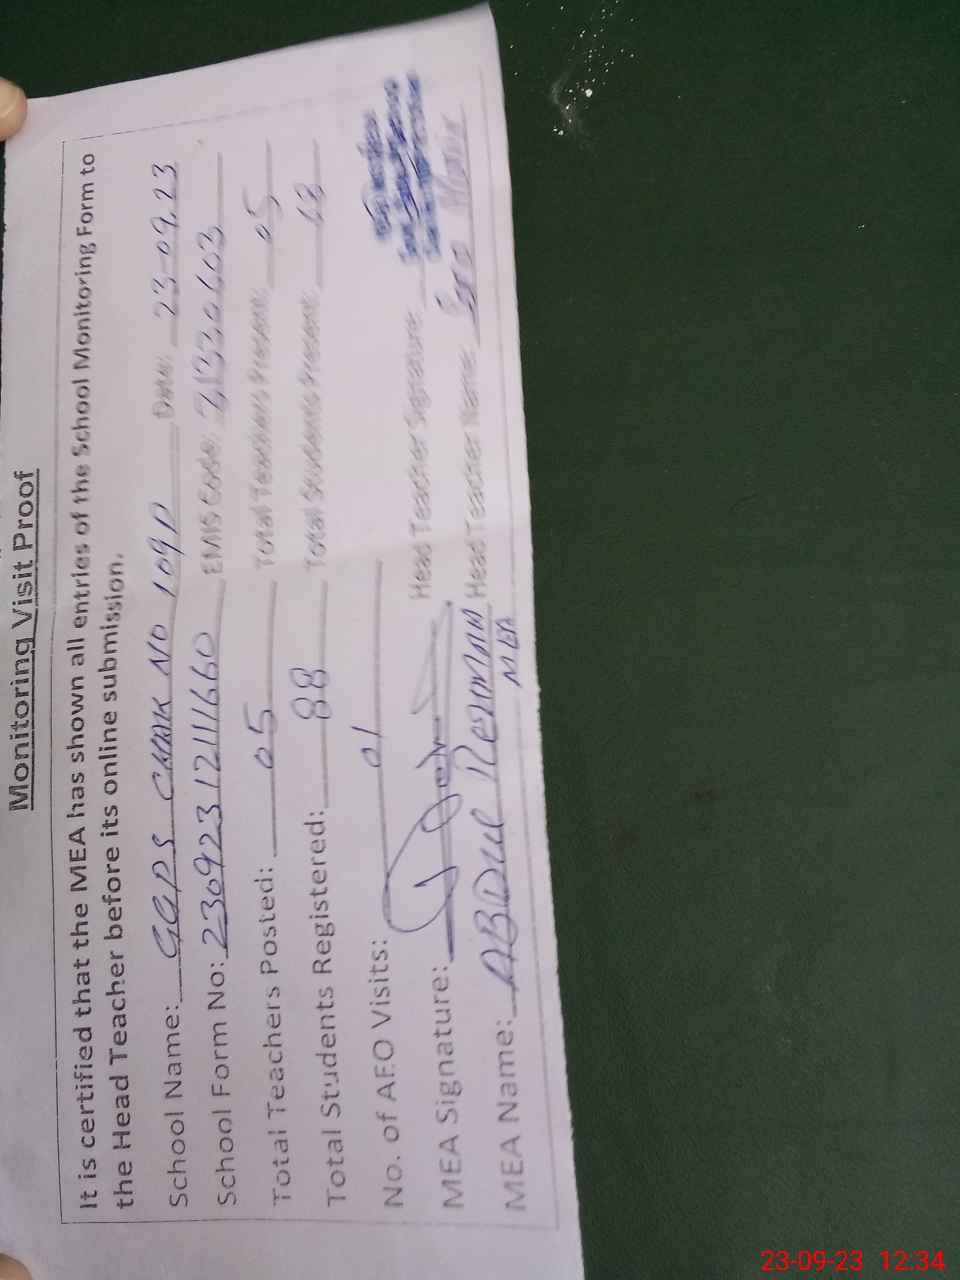 Monitoring Visit Proof
It is certified that the MEA has shown all entries of the School Monitoring Form to
the Head Teacher before its online submission.
School Name: GGPS CHAK NO 109P Date: 23-09.23
School Form No: 230923121111660 EMIS Code: 31330603
Total Teachers Posted: 05 Total Teachers Present: 05
Total Students Registered: 88 Total Students Present: 68
No. of AEO Visits: 01
MEA Signature: Head Teacher Signature:
MEA Name: ABDUL REHMAN Head Teacher Name:
MEA
23-09-23 12:34